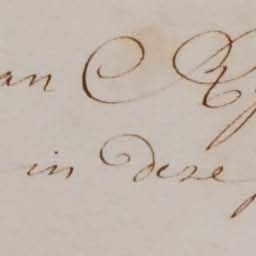 an C R
in deze